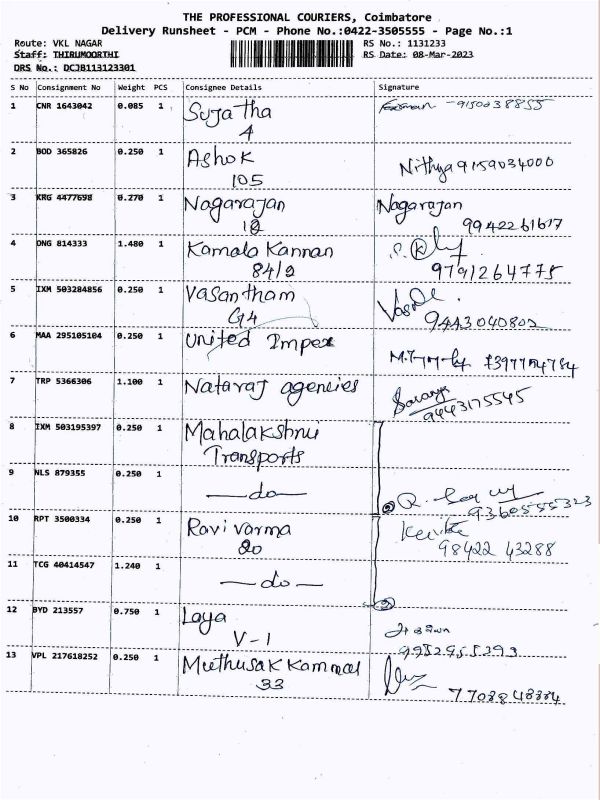 THE PROFESSIONAL COURIERS, Coimbatore
Delivery Runsheet - PCM - Phone No.:0422-3505555 - Page No.:1
Route: VKL NAGAR RS No.: 1131233
Staff: THIRUMOORTHI RS Date: 08-Mar-2023
DRS No.: DCJB113123301
S No Consignment No Weight PCS Consignee Details Signature
1 CNR 1643042 0.085 1 Sujatha 9150038855
4
2 BOD 365826 0.250 1 Ashok
105 Nithya 9159034000
3 KRG 4477698 0.270 1 Nagarajan Nagarajan
18 9942261617
4 DNG 814333 1.480 1 Kamala Kannan
84/2 9791264775
5 IXM 503284856 0.250 1 Vasantham
G4 9443040802
6 MAA 295105104 0.250 1 United Impex
7 TRP 5366306 1.100 1 Nataraj agencies Saranya
9443175545
8 IXM 503195397 0.250 1 Mahalakshmi
Transports
9 NLS 879355 0.250 1 —do—
9360555323
10 RPT 3500334 0.250 1 Ravi varma
20 98422 43288
11 TCG 40414547 1.240 1 —do—
2
12 BYD 213557 0.750 1 Laya
V-1 9952955293
13 VPL 217618252 0.250 1 Muthusakkammal
33